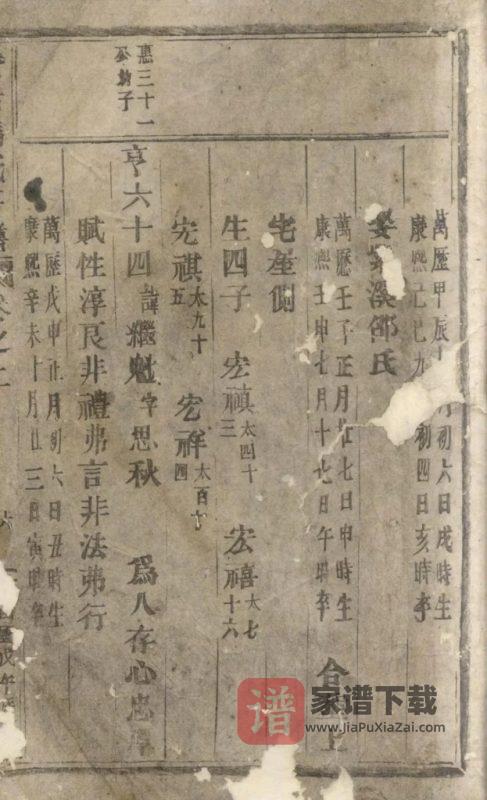 萬歷甲辰十 月初六日戌時生
康熙己巳九 初四日亥時卒
娶 溪邵氏
萬歷壬子正月廿七日申時生
康熙壬申七月十七日午時卒
合
宅產側
生四子 宏禛太四十三 宏禧太七十六
宏祺太九十五 宏祥太百十四
惠三十一
公幼子
亨六十四 諱繼魁字思秋 為人存心忠
賦性淳良非禮弗言非法弗行
萬歷戊申正月初六日丑時生
康熙辛未十月廿三日寅時卒
卷之上
譜
家谱下载
www.JiaPuXiaZai.com